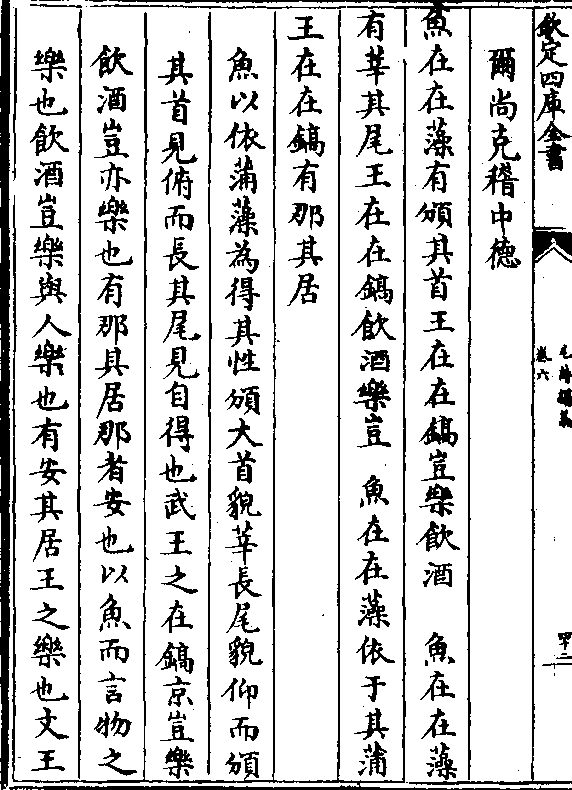 欽定四庫全書
毛詩講義
卷六
四十二
爾尚克稽中德
魚在在藻有頒其首王在在鎬豈樂飲酒　魚在在藻
有莘其尾王在在鎬飲酒樂豈　魚在在藻依于其蒲
王在在鎬有那其居
魚以依蒲藻為得其性頒大首貌莘長尾貌仰而頒
其首見俯而長其尾見自得也武王之在鎬京豈樂
飲酒豈亦樂也有那其居那者安也以魚而言物之
樂也飲酒豈樂與人樂也有安其居王之樂也文王